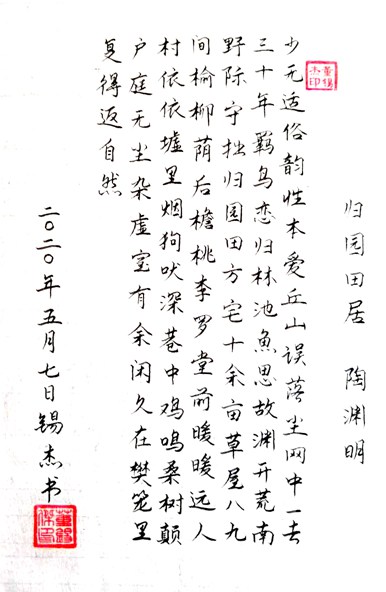 归园田居 陶渊明
董锡杰印
少无适俗韵性本爱丘山误落尘网中一去
三十年羁鸟恋归林池魚思故渊开荒南
野际守拙归园田方宅十余亩草屋八九
间榆柳荫后檐桃李罗堂前暖暖远人
村依依墟里烟狗吠深巷中鸡鸣桑树颠
户庭无尘杂虚室有余闲久在樊笼里
复得返自然
二〇二〇年五月七日锡杰书